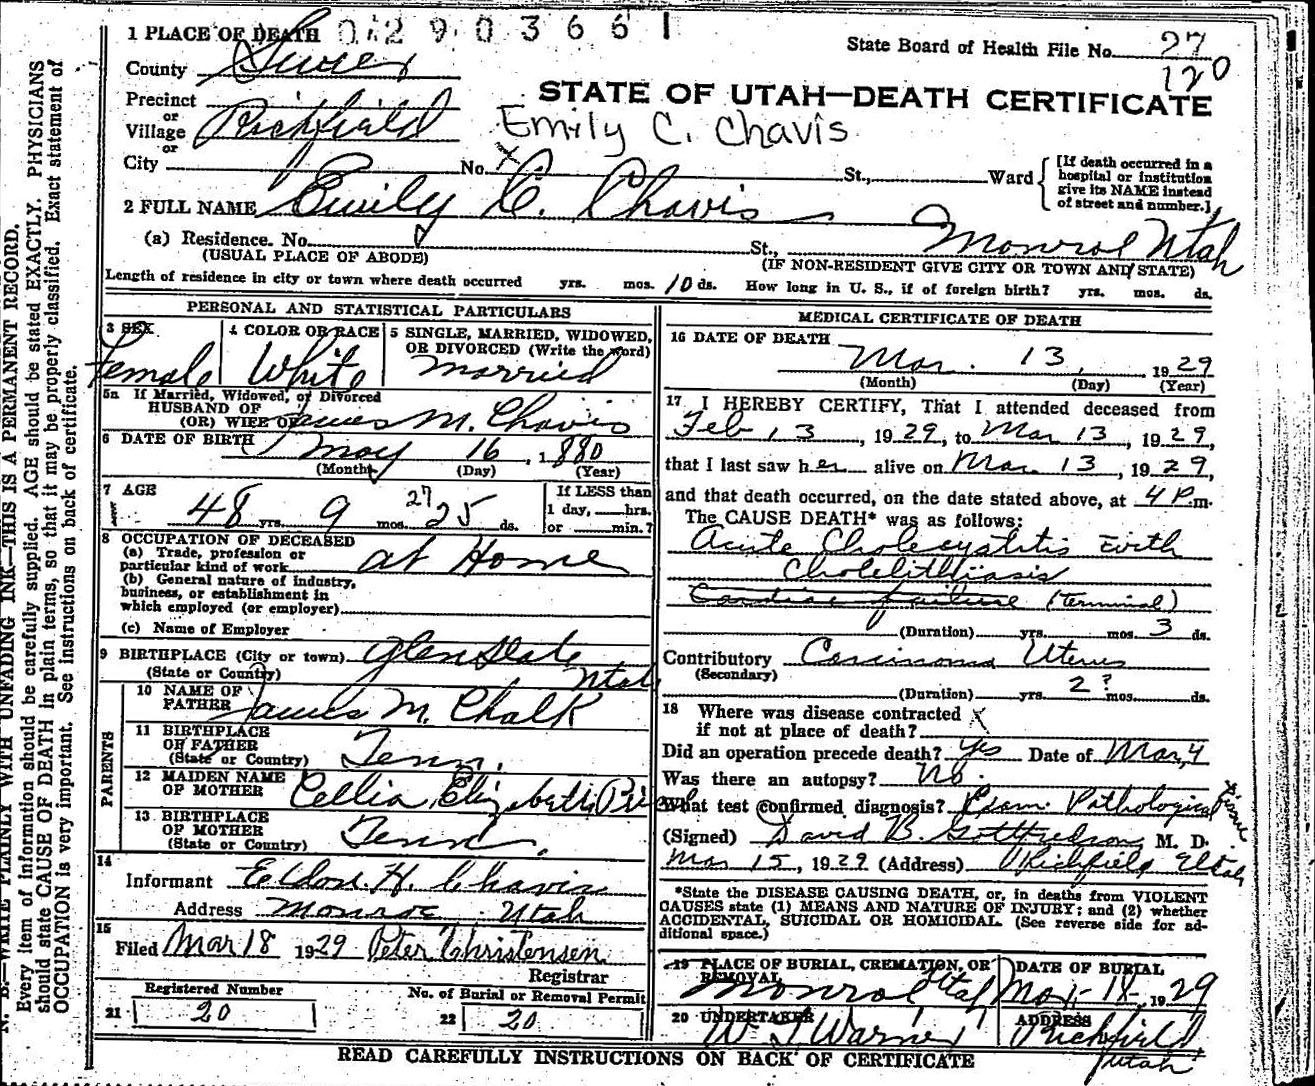 1 PLACE OF DEATH 0290366 1
State Board of Health File No. 27
120
County Sevier
STATE OF UTAH—DEATH CERTIFICATE
Precinct
or
Village Richfield
Emily C. Chavis
or
City No. X St., Ward
[If death occurred in a
hospital or institution
give its NAME instead
of street and number.]
2 FULL NAME Emily C. Chavis
(a) Residence. No. St., Monroe Utah
(USUAL PLACE OF ABODE) (IF NON-RESIDENT GIVE CITY OR TOWN AND STATE)
Length of residence in city or town where death occurred yrs. mos. 10 ds. How long in U. S., if of foreign birth? yrs. mos. ds.
PERSONAL AND STATISTICAL PARTICULARS
3 SEX 4 COLOR OR RACE 5 SINGLE, MARRIED, WIDOWED,
OR DIVORCED (Write the word)
Female White married
5a If Married, Widowed, or Divorced
HUSBAND OF
(OR) WIFE OF James M. Chavis
6 DATE OF BIRTH May 16, 1880
(Month) (Day) (Year)
7 AGE
48 yrs. 9 mos. 27 25 ds.
If LESS than
1 day, hrs.
or min.?
8 OCCUPATION OF DECEASED
(a) Trade, profession or
particular kind of work at Home
(b) General nature of industry,
business, or establishment in
which employed (or employer)
(c) Name of Employer
9 BIRTHPLACE (City or town)
(State or Country) Utah
PARENTS
10 NAME OF
FATHER James M. Chalk
11 BIRTHPLACE
OF FATHER
(State or Country) Tenn.
12 MAIDEN NAME
OF MOTHER Cellia Elizabeth Price
13 BIRTHPLACE
OF MOTHER
(State or Country) Tenn.
14
Informant Eldon H. Chavis
Address Monroe Utah
15
Filed Mar 18 1929 Peter Christensen
Registrar
Registered Number
21 20
No. of Burial or Removal Permit
22 20
MEDICAL CERTIFICATE OF DEATH
16 DATE OF DEATH
Mar. 13, 1929
(Month) (Day) (Year)
17 I HEREBY CERTIFY, That I attended deceased from
Feb 13, 1929, to Mar 13, 1929,
that I last saw her alive on Mar. 13, 1929,
and that death occurred, on the date stated above, at 4 P.m.
The CAUSE DEATH* was as follows:
Acute Cholecystitis with
Cholelithiasis
Cardiac failure (terminal)
(Duration) yrs. mos. 3 ds.
Contributory Carcinoma Uterus
(Secondary)
(Duration) yrs. 2? mos. ds.
18 Where was disease contracted
if not at place of death? X
Did an operation precede death? Yes Date of Mar, 4
Was there an autopsy? No.
What test confirmed diagnosis? Exam. Pathological tissue
(Signed) David B. Gottfredson M. D.
Mar 15, 1929 (Address) Richfield Utah
*State the DISEASE CAUSING DEATH, or, in deaths from VIOLENT
CAUSES state (1) MEANS AND NATURE OF INJURY; and (2) whether
ACCIDENTAL, SUICIDAL OR HOMICIDAL. (See reverse side for ad-
ditional space.)
19 PLACE OF BURIAL, CREMATION, OR
REMOVAL
Monroe Utah
DATE OF BURIAL
Mar. 14 1929
20 UNDERTAKER
Warner
ADDRESS
Richfield
Utah
READ CAREFULLY INSTRUCTIONS ON BACK OF CERTIFICATE
N. B.—WRITE PLAINLY WITH UNFADING INK—THIS IS A PERMANENT RECORD.
Every item of information should be carefully supplied. AGE should be stated EXACTLY. PHYSICIANS
should state CAUSE OF DEATH in plain terms, so that it may be properly classified. Exact statement of
OCCUPATION is very important. See instructions on back of certificate.